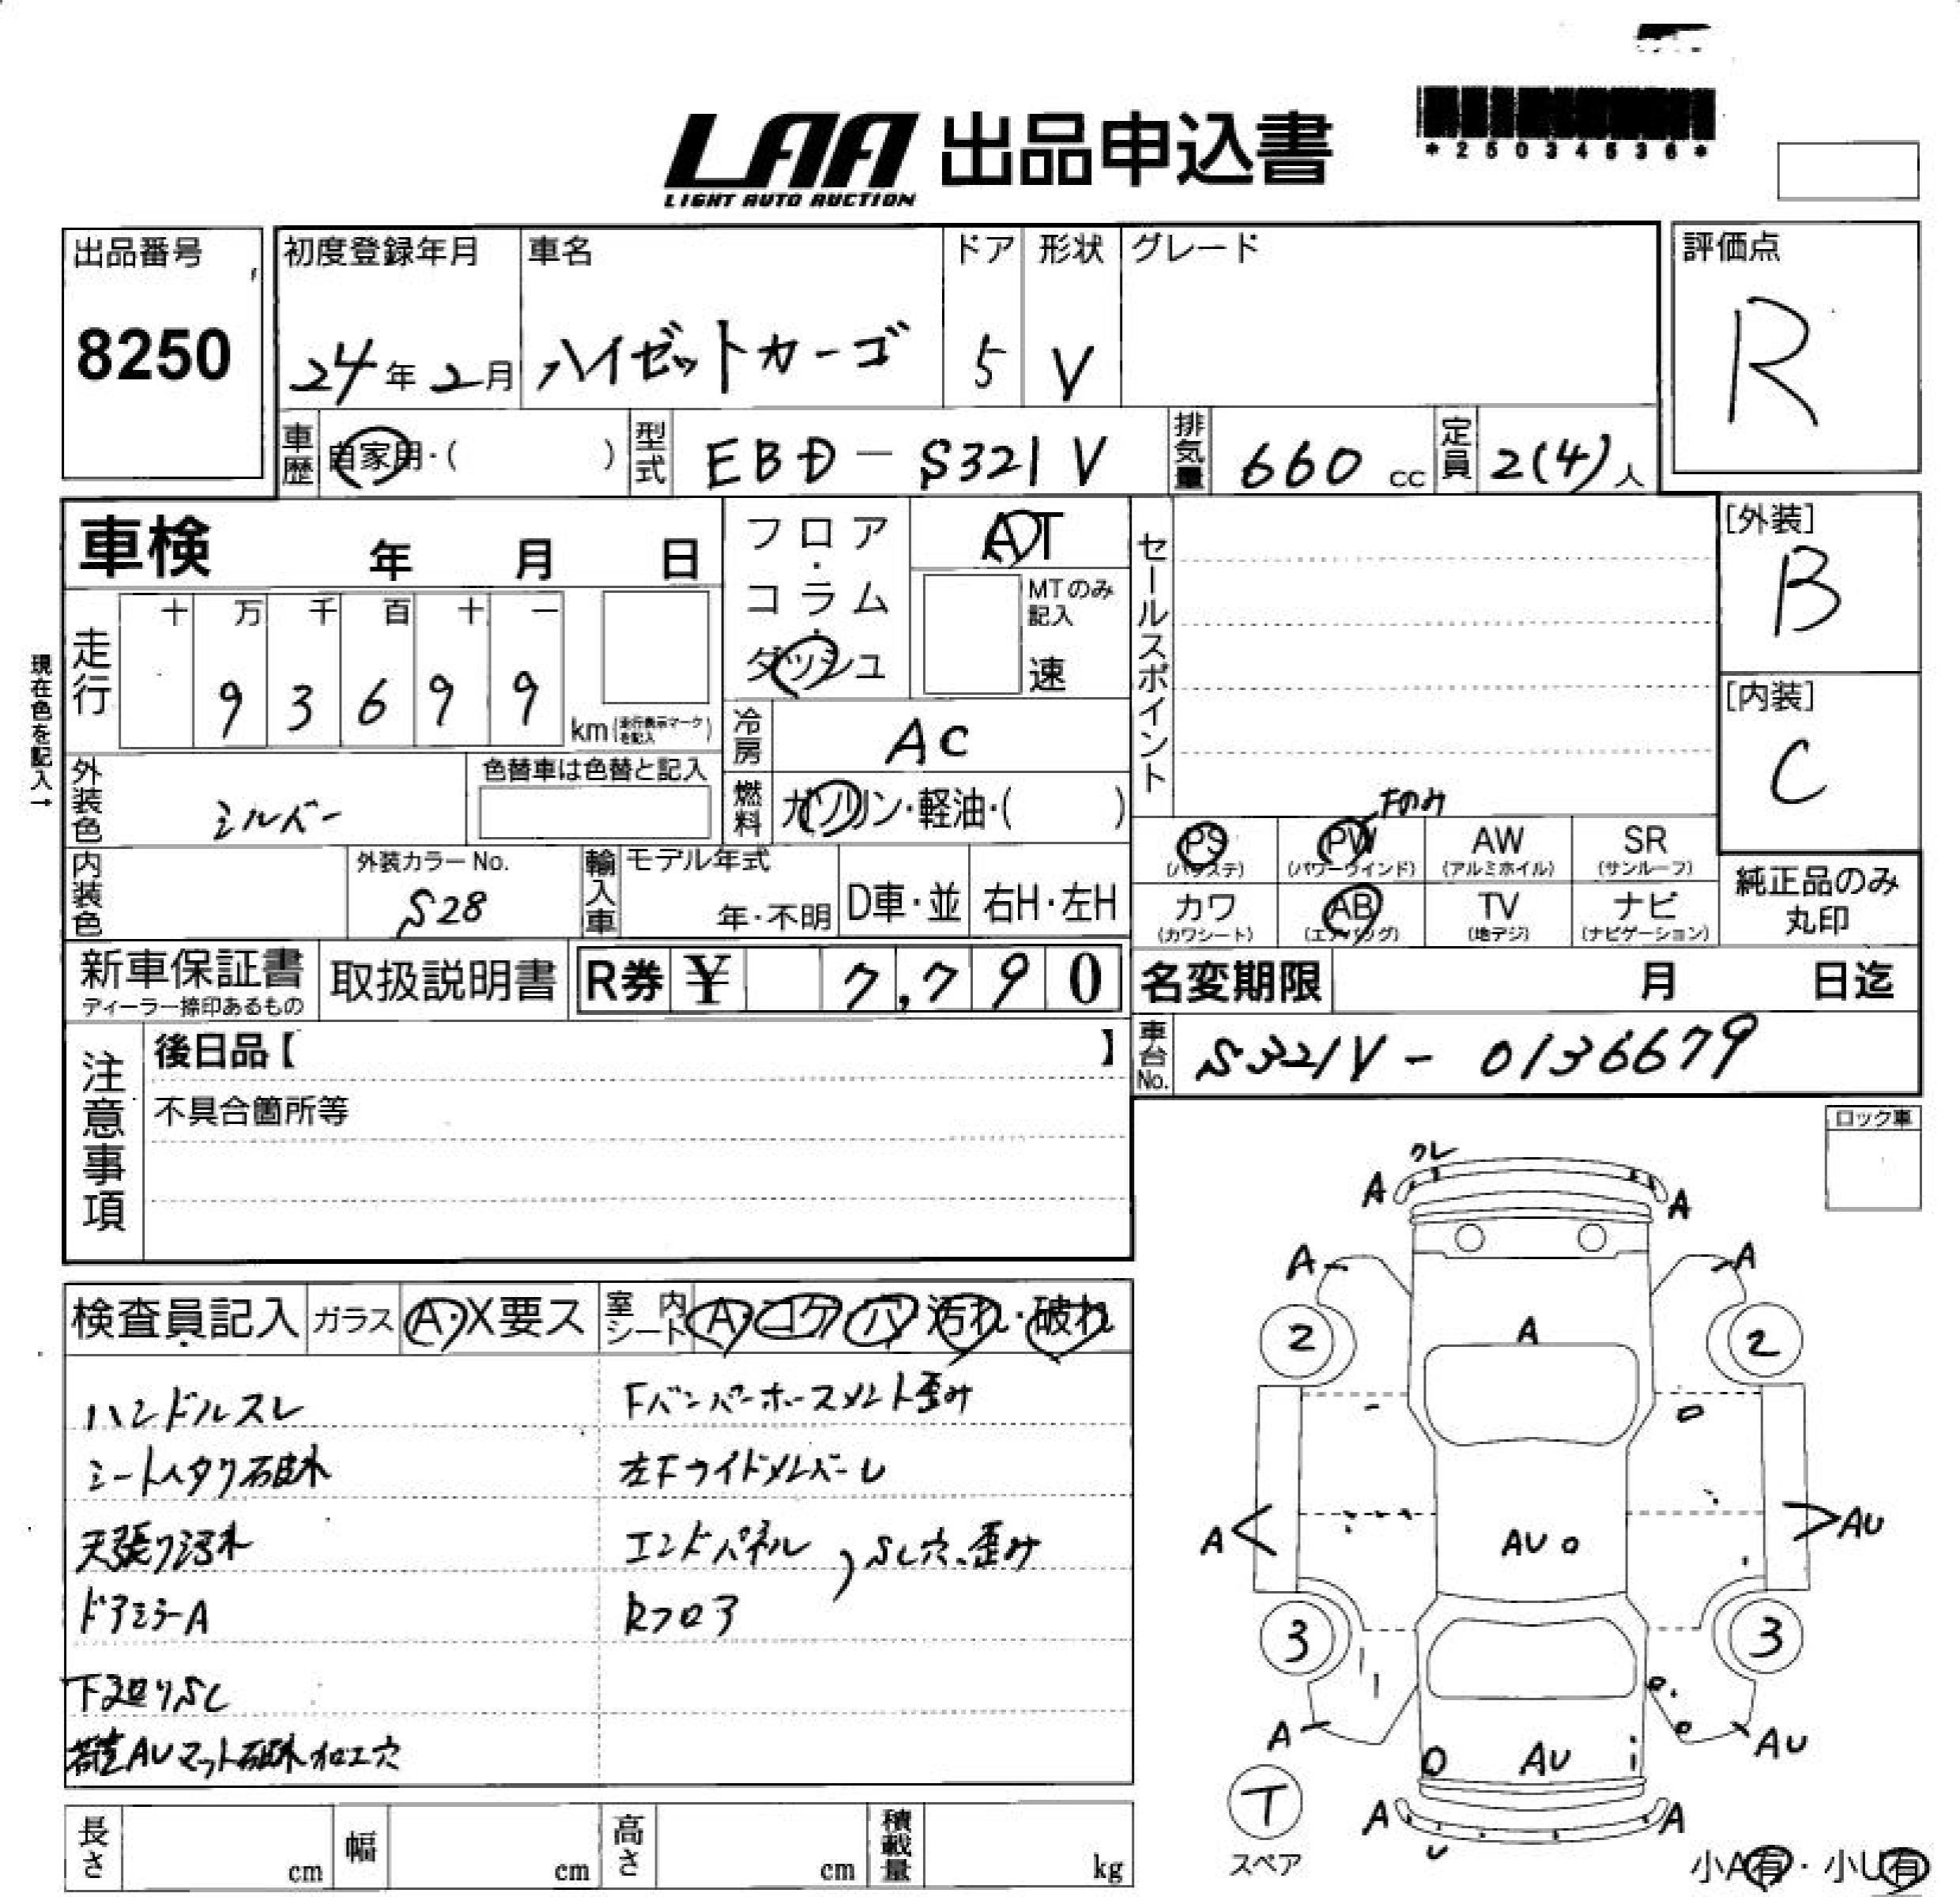 LAA 出品申込書
LIGHT AUTO AUCTION
*25034536*
出品番号
8250
初度登録年月
24年2月
車名
ハイゼットカーゴ
ドア
5
形状
V
グレード
評価点
R
車歴
自家用・( )
型式
EBD-S321V
排気量
660 cc
定員
2(4)人
車検 年 月 日
フロア・コラム・ダッシュ
AT
MTのみ記入
速
セールスポイント
[外装]
B
[内装]
C
現在色を記入→
走行
十 万 千 百 十 一
9 3 6 9 9
km(走行表示マークを記入)
冷房
AC
外装色
シルバー
色替車は色替と記入
燃料
ガソリン・軽油・( )
Fのみ
PS
(パワステ)
PW
(パワーウインド)
AW
(アルミホイル)
SR
(サンルーフ)
カワ
(カワシート)
AB
(エアバッグ)
TV
(地デジ)
ナビ
(ナビゲーション)
純正品のみ
丸印
内装色
外装カラーNo.
S28
輸入車
モデル年式
年・不明
D車・並
右H・左H
新車保証書
ディーラー捺印あるもの
取扱説明書
R券 ¥ 7,790
名変期限 月 日迄
車台No.
S321V-0136679
注意事項
後日品【 】
不具合箇所等
ロック車
検査員記入
ガラス
A・X要ス
室内シート
A・コゲ・穴・汚れ・破れ
ハンドルスレ
シートハタク破れ
天張り汚れ
ドアミラーA
下廻りSC
荷室AUマット破れ加工穴
Fバンパーホースメント歪み
左FサイドメンバーU
エンドパネル
Rフロア
SC穴、歪み
ワレ
A
A
A
A
2
2
A
A
AU
AU
3
3
A
AU
AU
T
スペア
A
A
U
小A有・小U有
長さ cm
幅 cm
高さ cm
積載量 kg